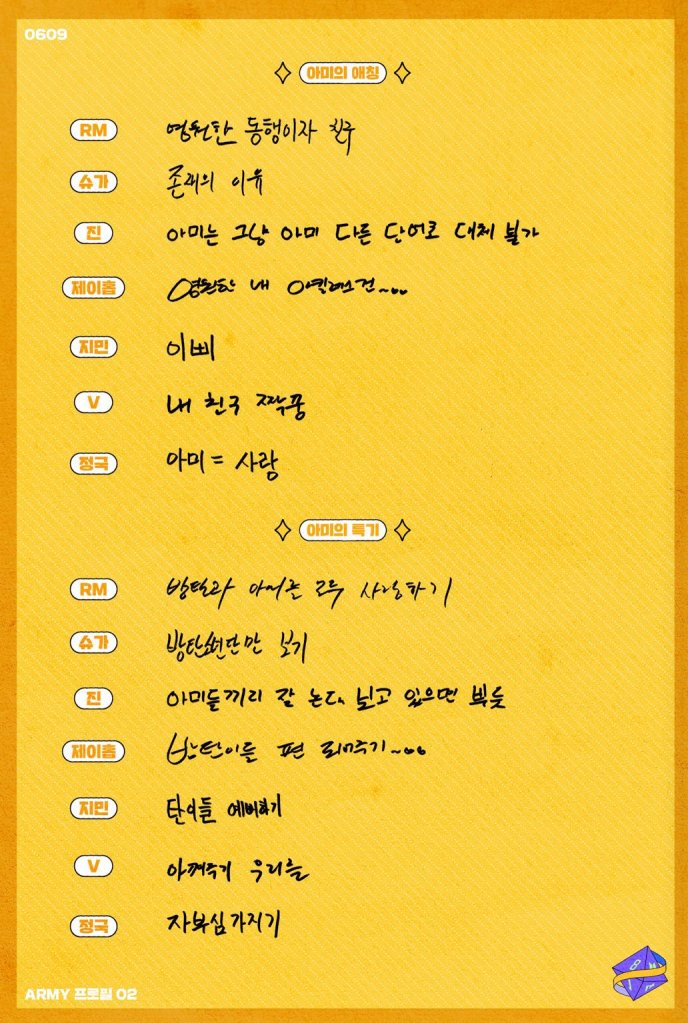 0609
아미의 애칭
RM 영원한 동행이자 친구
슈가 존재의 이유
진 아미는 그냥 아미 다른 단어로 대체 불가
제이홉 영원한 내 에밀레스건~
지민 이삐
V 내 친구 짝꿍
정국 아미 = 사랑
아미의 특기
RM 방탄과 아미를 모두 사랑하기
슈가 방탄소년단만 보기
진 아미들끼리 잘 논다 보고 있으면 뿌듯
제이홉 방탄이들 편 되어주기~
지민 탄이들 예뻐하기
V 아껴주기 우리를
정국 자부심 가지기
ARMY 프로필 02